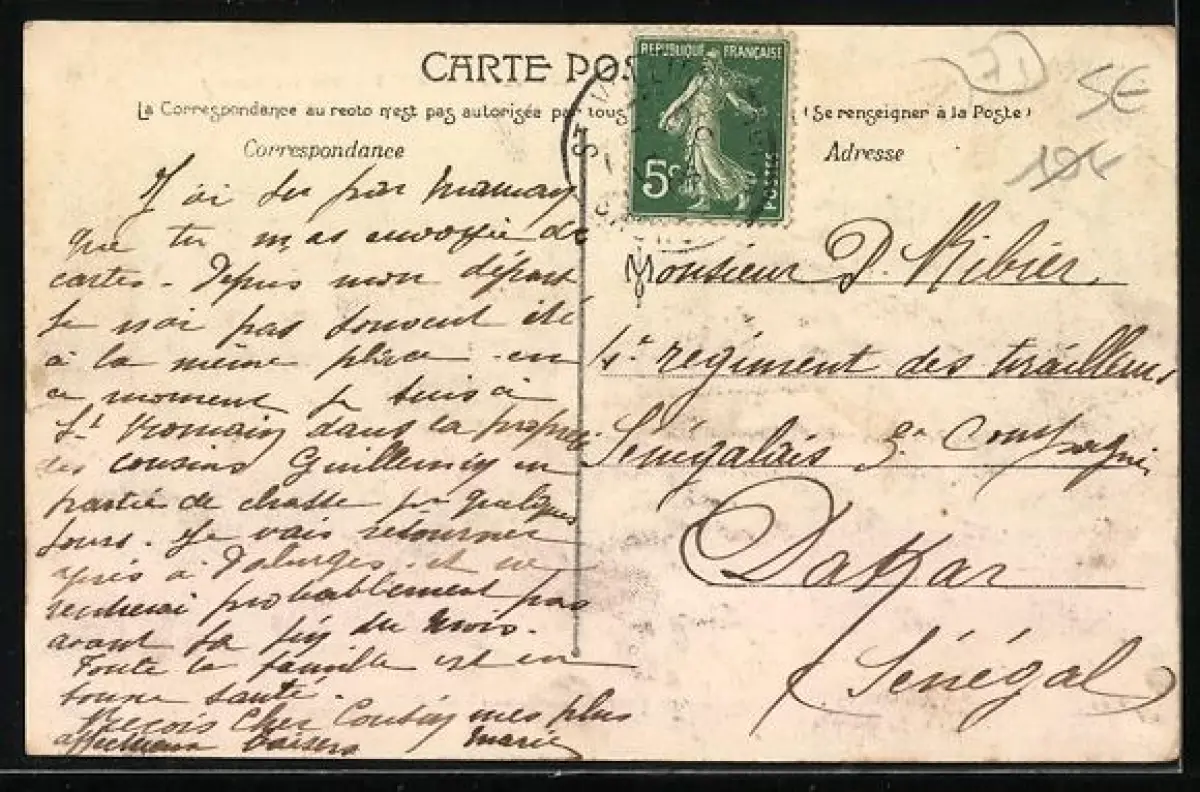 RÉPUBLIQUE FRANÇAISE
5c
POSTES
CARTE POS
La Correspondance au recto n'est pas autorisée par tous
(Se renseigner à la Poste)
Correspondance
Adresse
SE
J'ai su par maman
que tu m'as envoyé de
cartes. Depuis mon départ
je n'ai pas souvent été
à la même place en
ce moment je suis à
St Romain dans la propr
des cousins Guillemin en
partie de chasse pr quelques
jours. Je vais retourner
après à et ne
rentrerai probablement pas
avant la fin du mois.
Toute la famille est en
bonne santé.
Reçois Cher Cousin mes plus
affectueux baisers Marie
Monsieur P. Ribier
4e regiment des tirailleurs
Sénégalais 3e Compagnie
Dakar
(Sénégal)